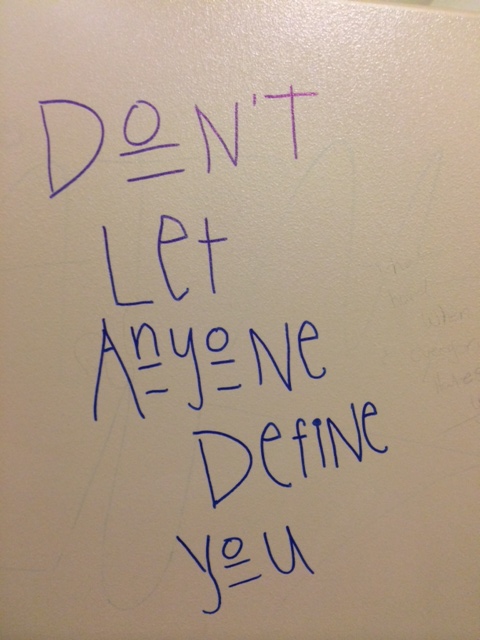 DON'T
Let
AnyoNe
DefiNe
you